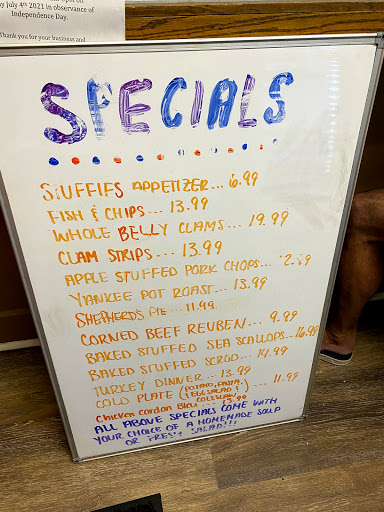 y July 4th 2021 in observance of
Independence Day.
Thank you for your business and
SPECIALS
STUFFIES APPETIZER... 6.99
FISH & CHIPS... 13.99
WHOLE BELLY CLAMS... 19.99
CLAM STRIPS... 13.99
APPLE STUFFED PORK CHOPS... 2.99
YANKEE POT ROAST... 13.99
SHEPHERD'S PIE... 11.99
CORNED BEEF REUBEN... 9.99
BAKED STUFFED SEA SCALLOPS... 16.99
BAKED STUFFED SCROD... 14.99
TURKEY DINNER... 13.99
COLD PLATE (POTATO, PASTA, EGG SALAD, COLESLAW)... 11.99
Chicken Cordon Bleu... 13.99
ALL ABOVE SPECIALS COME WITH
YOUR CHOICE OF A HOMEMADE SOUP
OR FRESH SALAD!!!